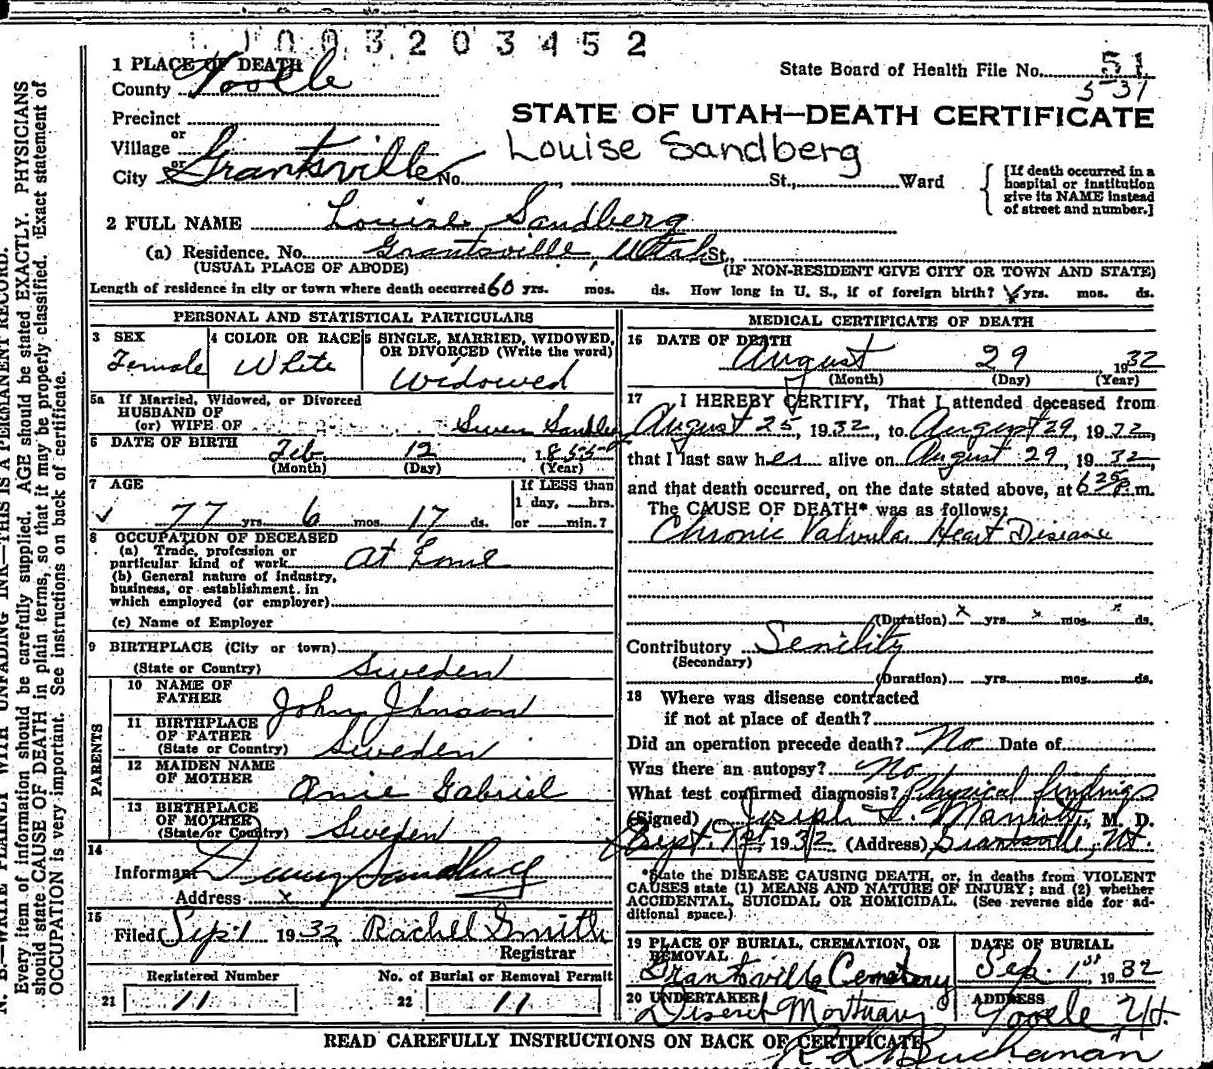 1003203452
1 PLACE OF DEATH
County Tooele
State Board of Health File No. 51
5-31
Precinct
STATE OF UTAH—DEATH CERTIFICATE
or
Village
Louise Sandberg
or
City Grantsville No. , St., Ward
[If death occurred in a hospital or institution give its NAME instead of street and number.]
2 FULL NAME Louise Sandberg
(a) Residence. No. Grantsville, Utah St.,
(USUAL PLACE OF ABODE) (IF NON-RESIDENT GIVE CITY OR TOWN AND STATE)
Length of residence in city or town where death occurred 60 yrs. mos. ds. How long in U. S., if of foreign birth? yrs. mos. ds.
PERSONAL AND STATISTICAL PARTICULARS
3 SEX
Female
4 COLOR OR RACE
White
5 SINGLE, MARRIED, WIDOWED,
OR DIVORCED (Write the word)
Widowed
5a If Married, Widowed, or Divorced
HUSBAND OF
(or) WIFE OF Swen
6 DATE OF BIRTH Feb. 12, 1855
(Month) (Day) (Year)
7 AGE
77 yrs. 6 mos. 17 ds.
If LESS than
1 day, hrs.
or min.?
8 OCCUPATION OF DECEASED
(a) Trade, profession or
particular kind of work At Home
(b) General nature of industry,
business, or establishment in
which employed (or employer)
(c) Name of Employer
9 BIRTHPLACE (City or town)
(State or Country) Sweden
PARENTS
10 NAME OF
FATHER John Jhnson
11 BIRTHPLACE
OF FATHER
(State or Country) Sweden
12 MAIDEN NAME
OF MOTHER Anie Gabriel
13 BIRTHPLACE
OF MOTHER
(State or Country) Sweden
14
Informant Sandberg
Address x
15
Filed Sep 1 1932 Rachel Smith
Registrar
Registered Number No. of Burial or Removal Permit
21 11 22 11
MEDICAL CERTIFICATE OF DEATH
16 DATE OF DEATH
August 29, 1932
(Month) (Day) (Year)
17 I HEREBY CERTIFY, That I attended deceased from
August 25, 1932, to August 29, 1932,
that I last saw her alive on August 29, 1932,
and that death occurred, on the date stated above, at 6 25 P.m.
The CAUSE OF DEATH* was as follows:
Chronic Valvular Heart Disease
(Duration) x yrs. x mos. x ds.
Contributory Senility
(Secondary)
(Duration) yrs. mos. ds.
18 Where was disease contracted
if not at place of death?
Did an operation precede death? No Date of
Was there an autopsy? No
What test confirmed diagnosis? Physical findings
(Signed) Joseph , M. D.
Sept. 1st, 1932 (Address) Grantsville, Ut.
*State the DISEASE CAUSING DEATH, or, in deaths from VIOLENT
CAUSES state (1) MEANS AND NATURE OF INJURY; and (2) whether
ACCIDENTAL, SUICIDAL OR HOMICIDAL. (See reverse side for ad-
ditional space.)
19 PLACE OF BURIAL, CREMATION, OR
REMOVAL
Grantsville Cemetery
DATE OF BURIAL
Sep. 1st 1932
20 UNDERTAKER
Deseret Mortuary
ADDRESS
Tooele Ut.
READ CAREFULLY INSTRUCTIONS ON BACK OF CERTIFICATE
Buchanan
N. B.—WRITE PLAINLY WITH UNFADING INK—THIS IS A PERMANENT RECORD.
Every item of information should be carefully supplied. AGE should be stated EXACTLY. PHYSICIANS
should state CAUSE OF DEATH in plain terms, so that it may be properly classified. Exact statement of
OCCUPATION is very important. See instructions on back of certificate.